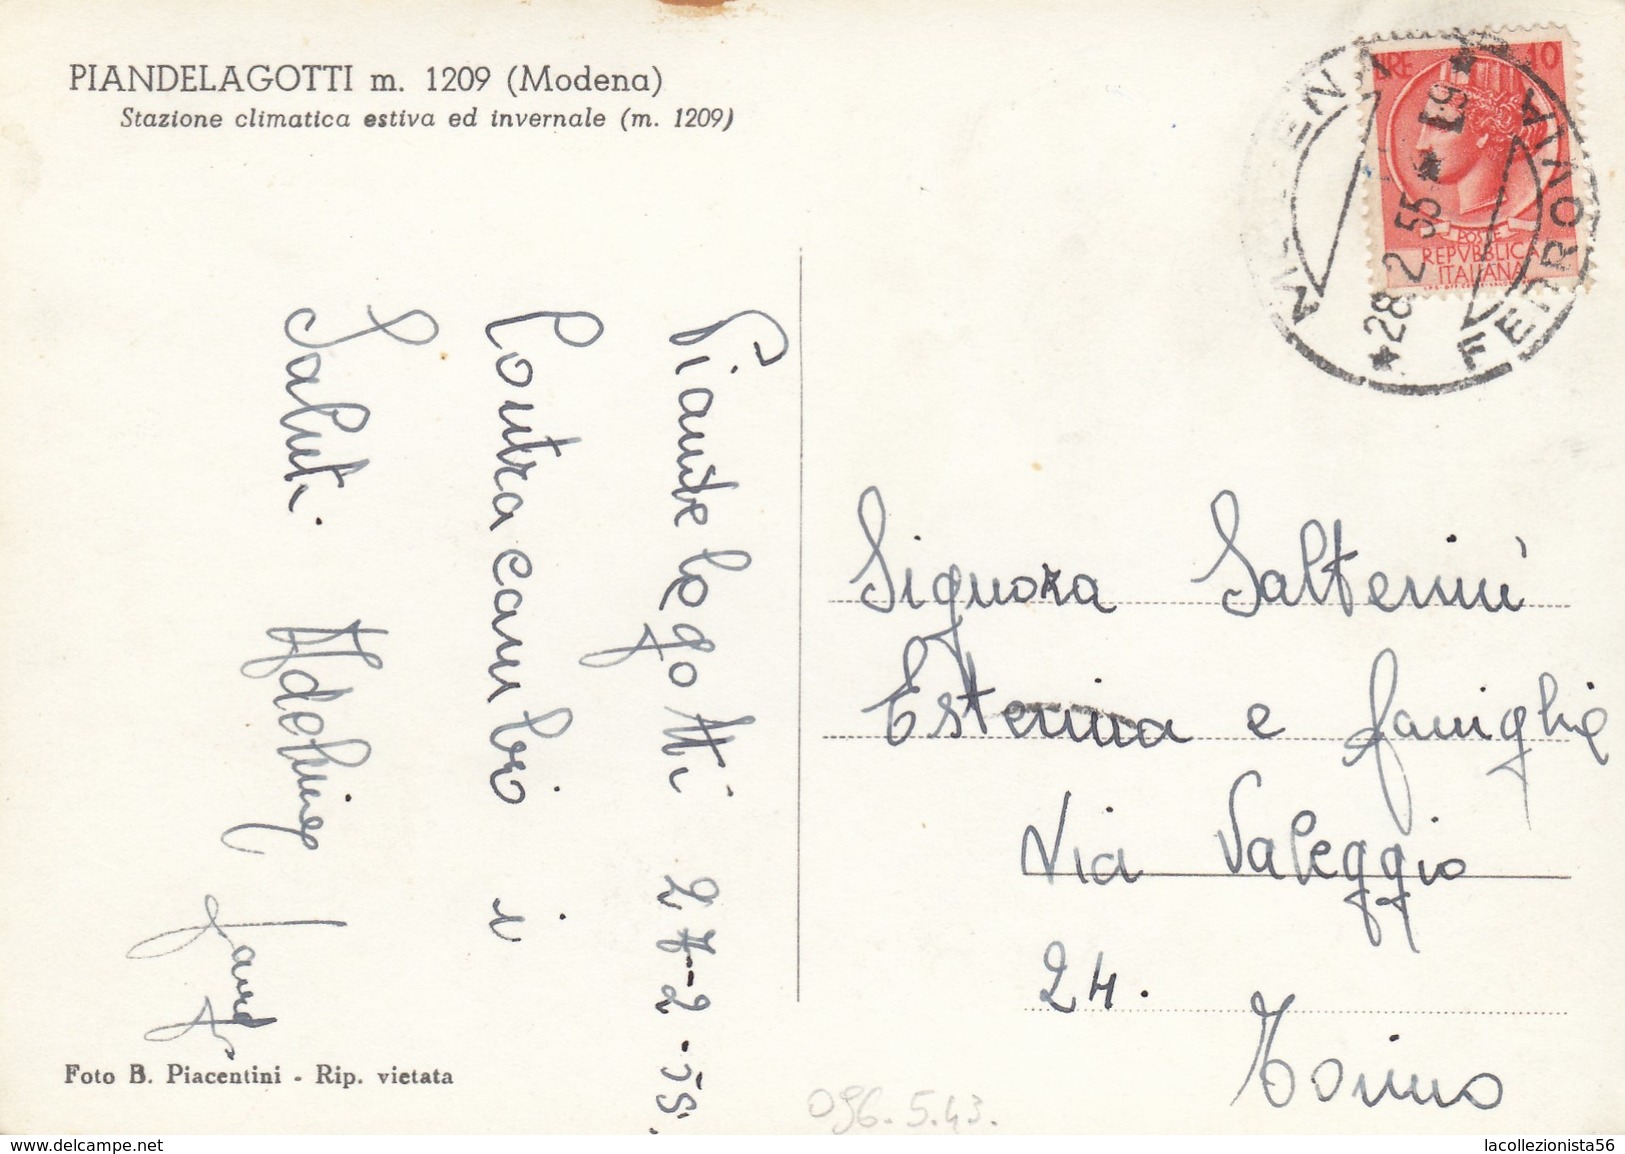 PIANDELAGOTTI m. 1209 (Modena)
Stazione climatica estiva ed invernale (m. 1209)
LIRE 10
POSTE
REPVBBLICA
ITALIANA
FERROVIA
*28 2 55 * 19 *
Piandelagotti 27-2-55.
Contracambio i
Saluti.
Signora Salterini
Esterina e famiglia
Via Valeggio
24.
Torino
Foto B. Piacentini - Rip. vietata
096.5.43.
lacollezionista56